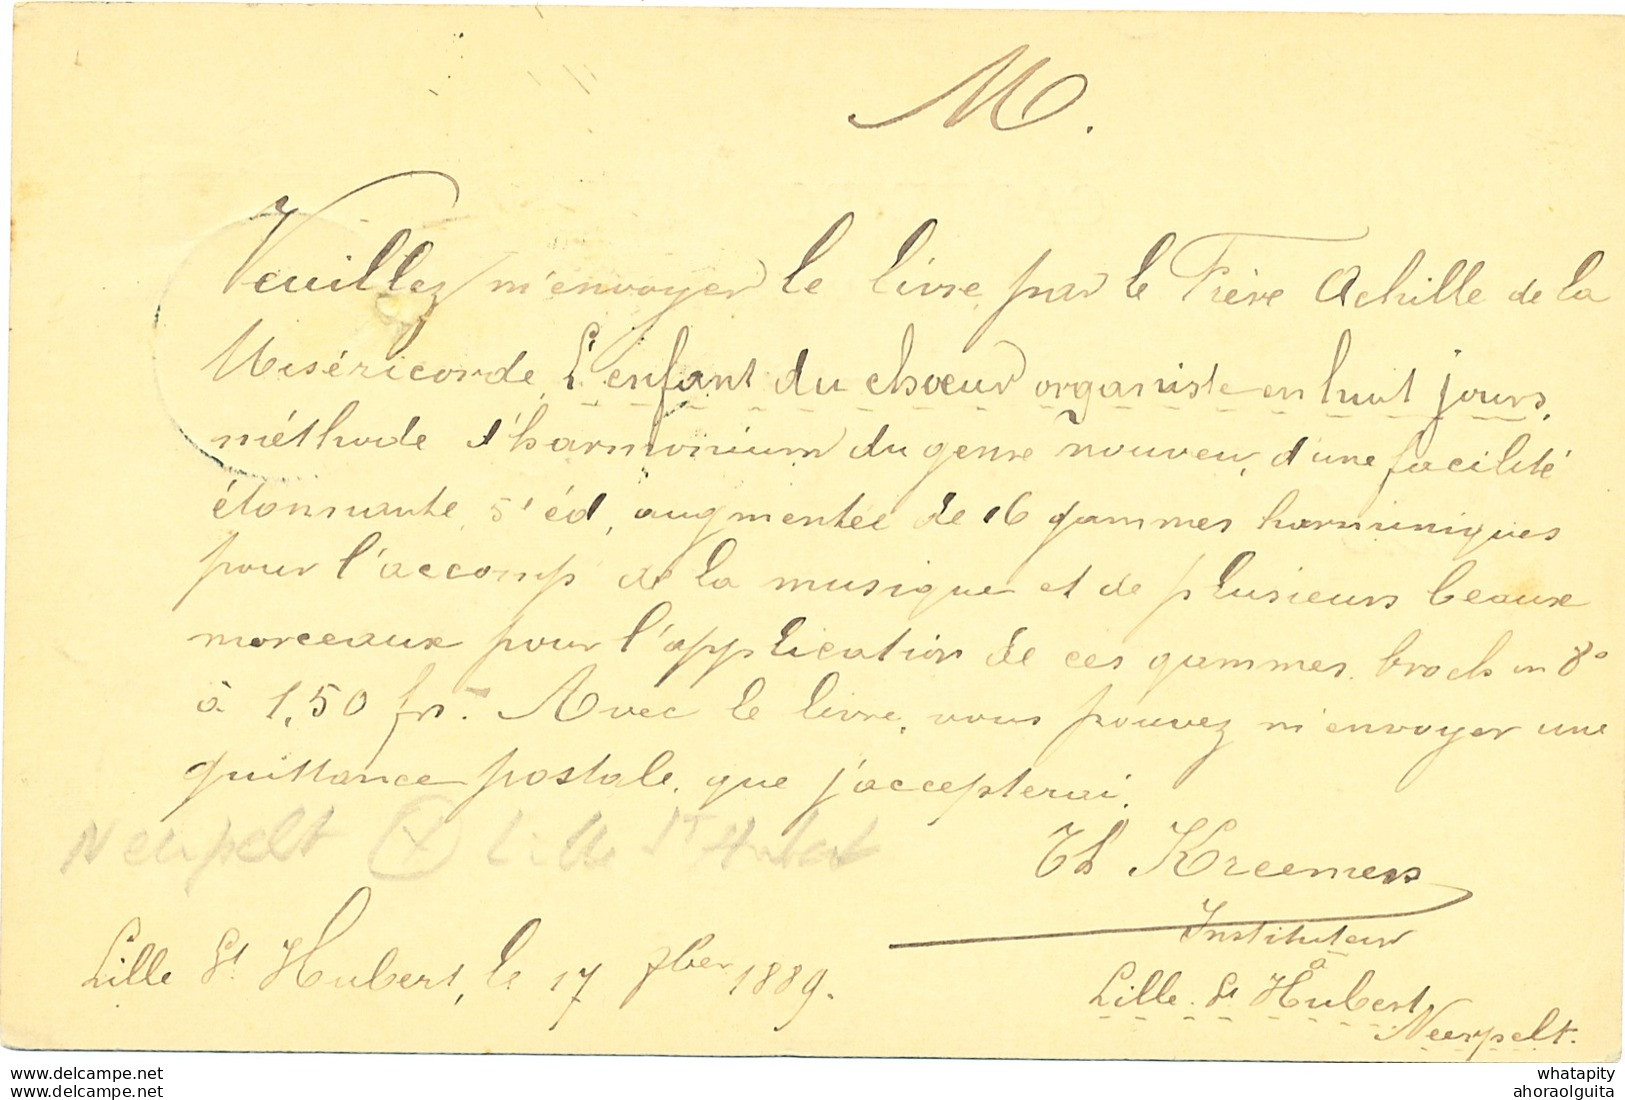 M.
Veuillez m'envoyer le livre par le Frère Achille de la
Miséricorde, L'enfant du chœur organiste en huit jours,
méthode d'harmonium du genre nouveu, d'une facilité
étonnante, 5' éd, augmentée de 16 gammes harmuniques
pour l'accomp de la musique et de plusieurs beaux
morceaux pour l'application de ces gammes. broch in 8°
à 1,50 frs. Avec le livre, vous pouvez m'envoyer une
quittance postale, que j'accepterai.
Neerpelt Lille St Hubert
Th Kreemers
Instituteur
à
Lille St Hubert, le 17 7ber 1889.
Lille St Hubert
Neerpelt.
whatapity
www.delcampe.net
ahoraolguita